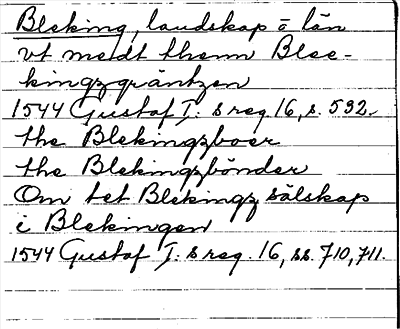 Bleking, landskap o län
vt medt thenn Blee-
kingzgräntzen
1544 Gustaf I:s reg. 16, s. 532.
the Blekingzboer
the Blekingzbönder
Om tet Blekingz sälskap
i Blekingen
1544 Gustaf I:s reg. 16, ss. 710, 711.